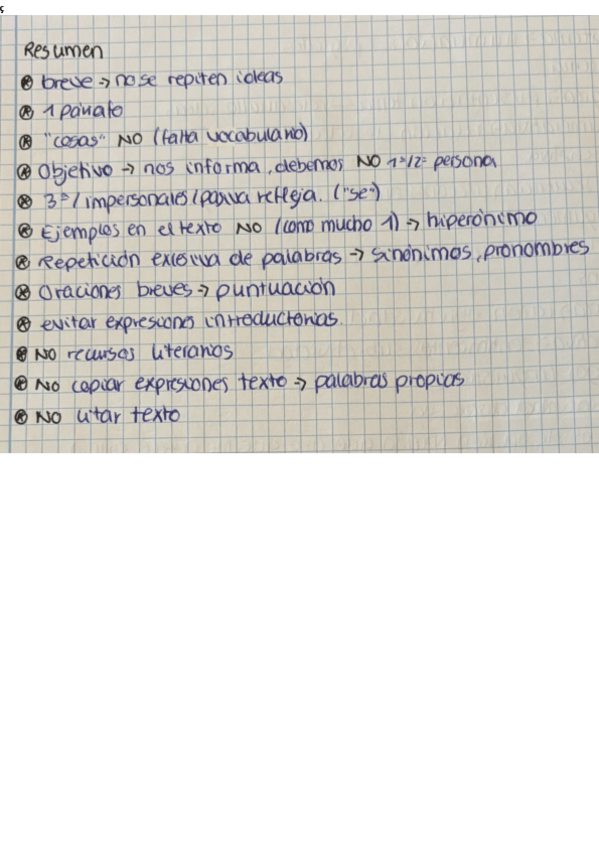 ς
Resumen
⊛ breve → no se repiten ideas
⊛ 1 párrafo
⊛ "cosas" NO (falta vocabulario)
⊛ Objetivo → nos informa, debemos NO 1ª/2ª persona
⊛ 3ª / impersonales / pasiva refleja. ("se")
⊛ Ejemplos en el texto NO (como mucho 1) → hiperónimo
⊛ Repetición excesiva de palabras → sinónimos, pronombres
⊛ Oraciones breves → puntuación
⊛ evitar expresiones introductorias.
⊛ NO recursos literarios
⊛ NO copiar expresiones texto → palabras propias
⊛ NO citar texto